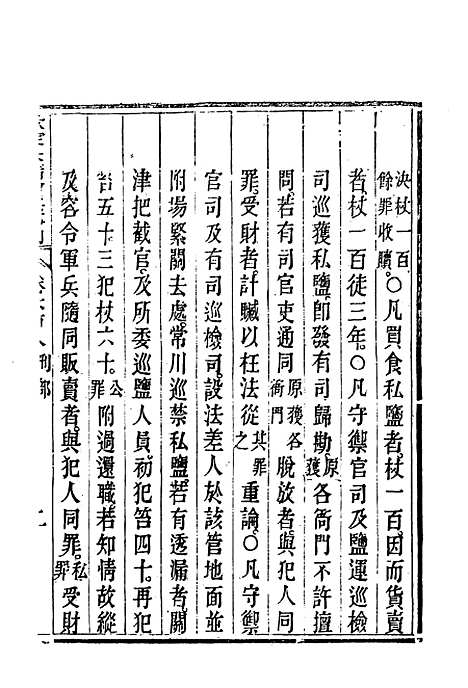 決杖一百
餘罪收贖。○凡買食私鹽者杖一百因而貨賣
者杖一百徒三年。○凡守禦官司及鹽運巡檢
司巡獲私鹽。卽發有司歸勘。原獲各衙門不許擅
問。若有司官吏通同原獲各衙門脫放者。與犯人同
罪。受財者。計贓以枉法從其罪之重論。○凡守禦
官司及有司巡檢司。設法差人於該管地面並
附場緊關去處。常川巡禁私鹽。若有透漏者。關
津把截官。及所委巡鹽人員。初犯笞四十。再犯
笞五十。三犯杖六十。公罪附過還職。若知情故縱
及容令軍兵隨同販賣者。與犯人同罪。私罪受財
刑部